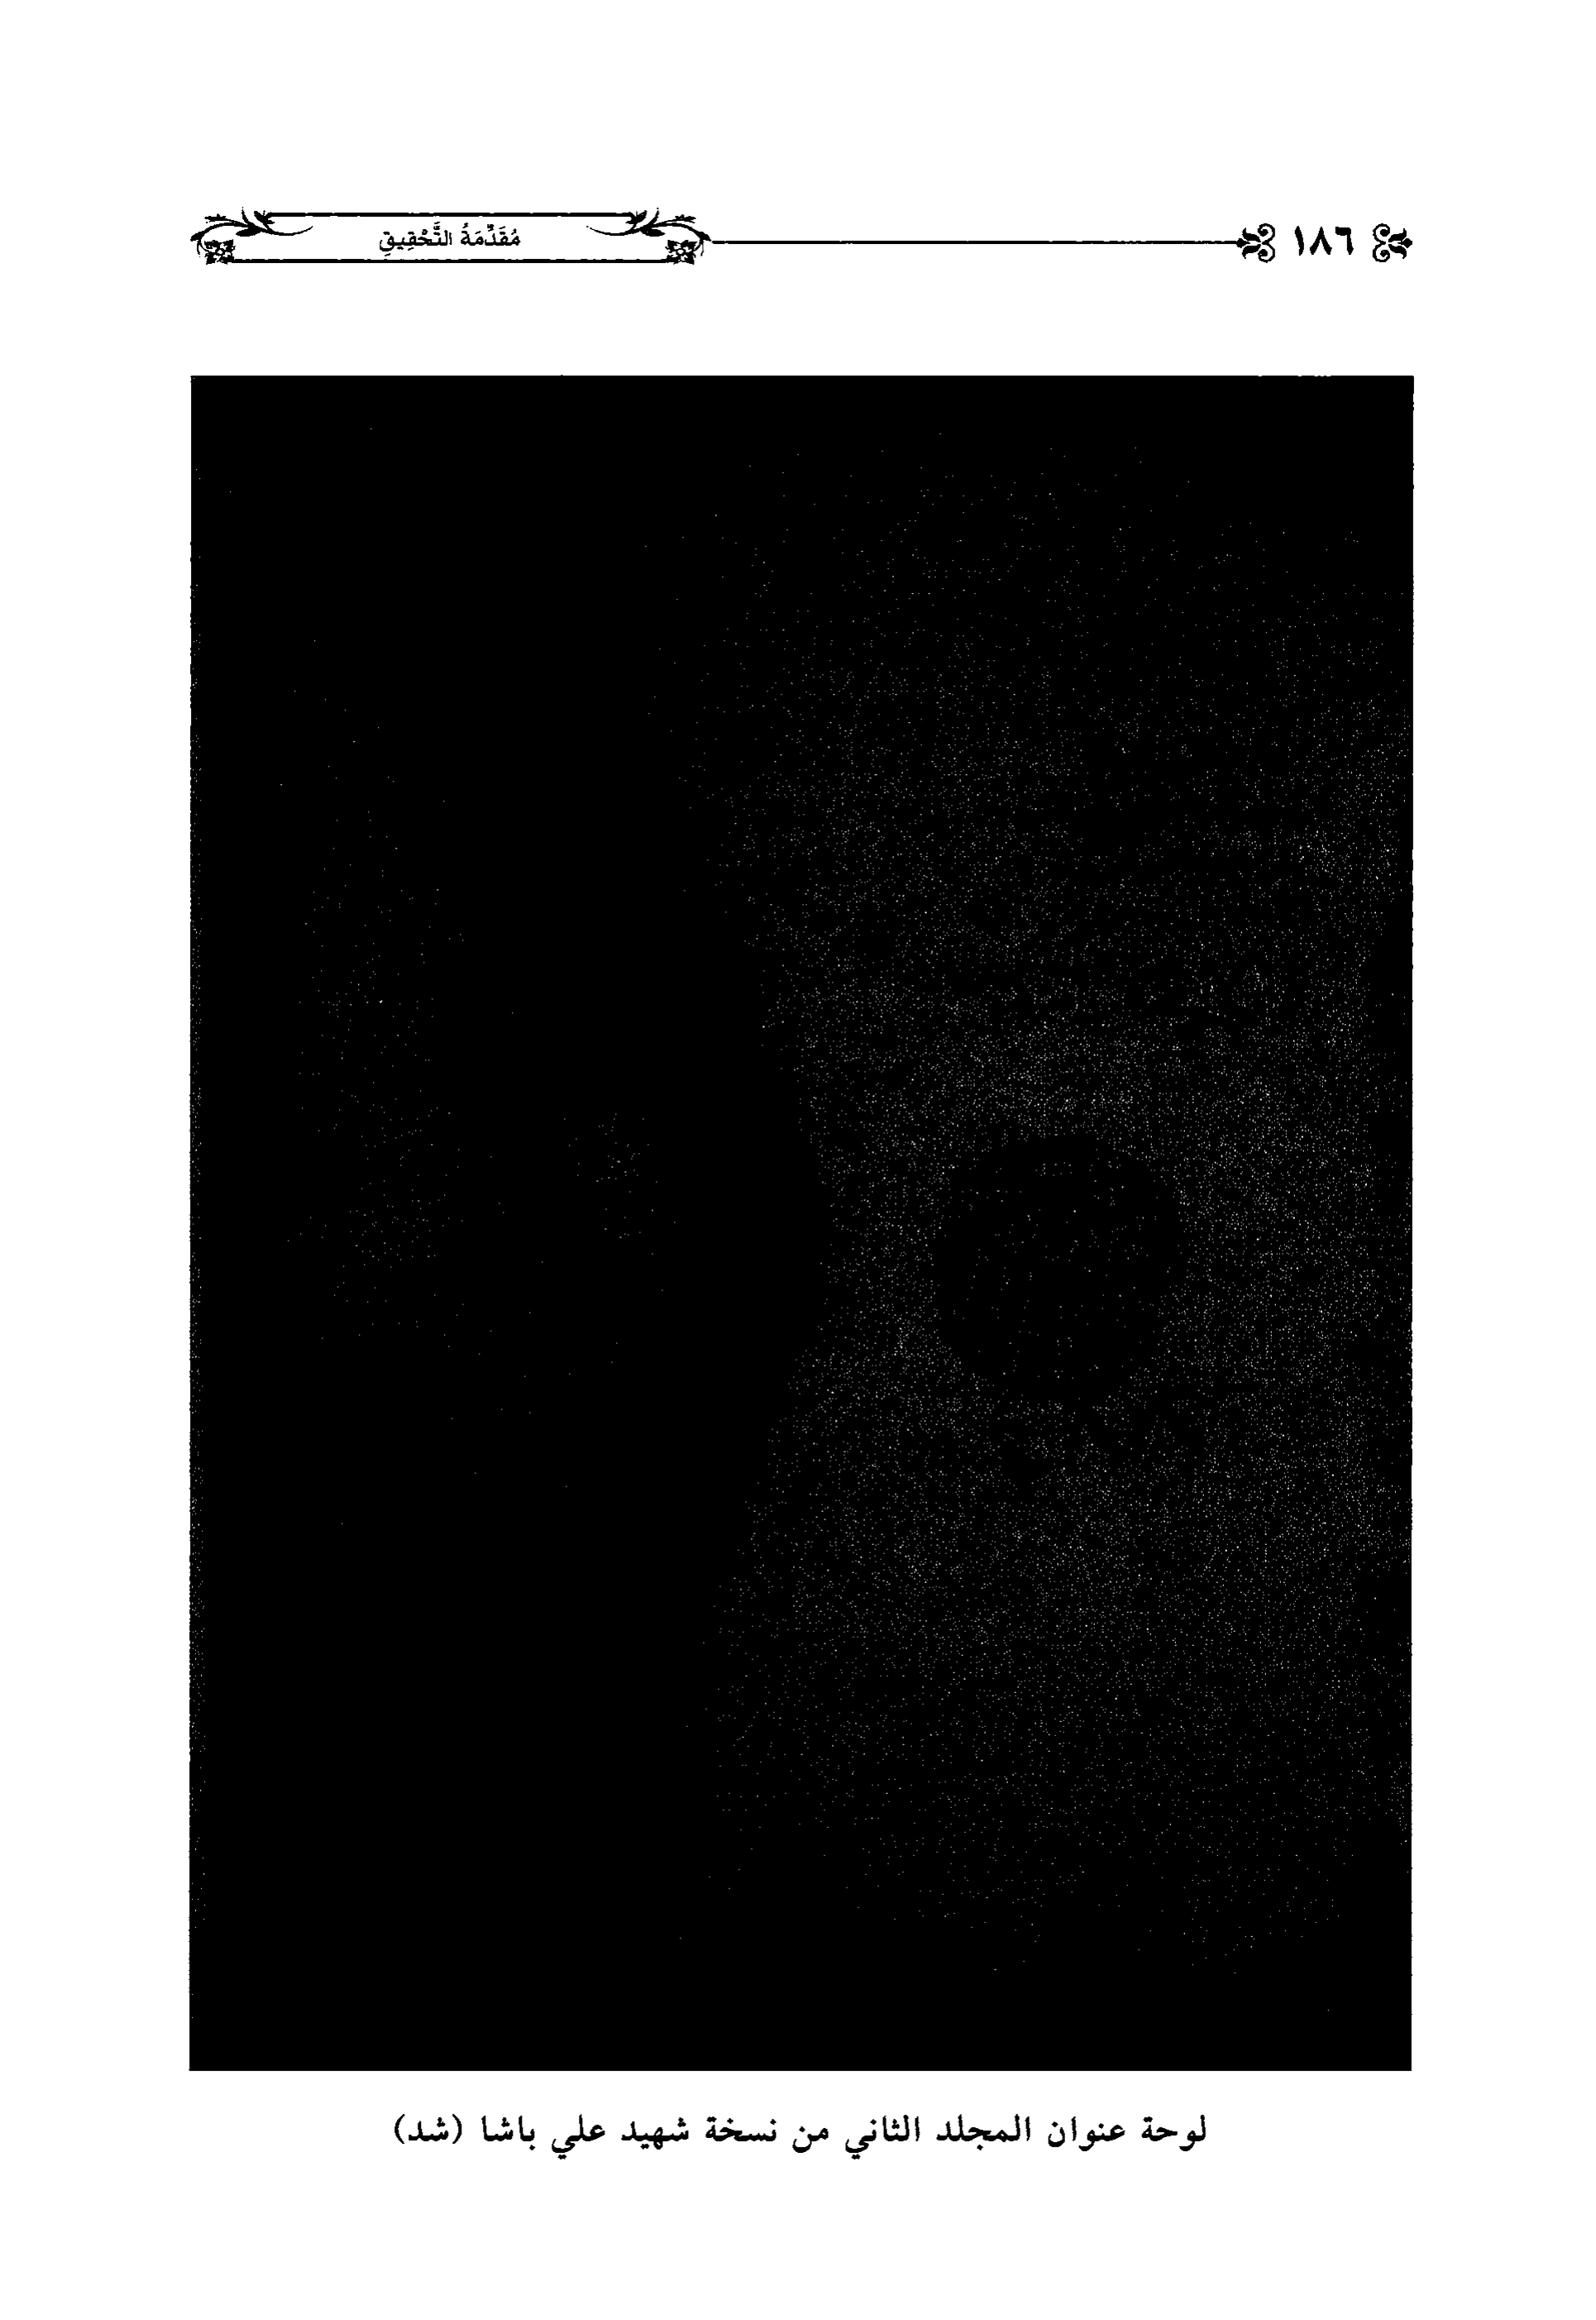 ١٨٦
مُقَدِّمَةُ التَّحْقِيقِ
لوحة عنوان المجلد الثاني من نسخة شهيد علي باشا (شد)